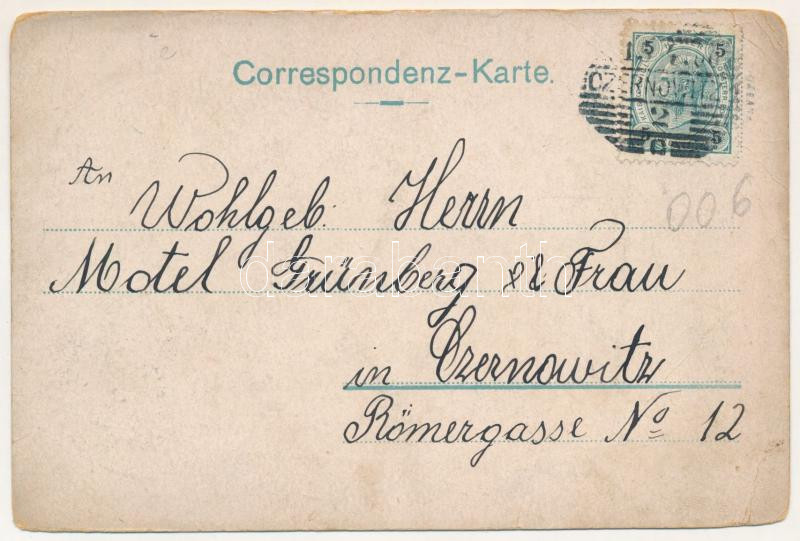 Correspondenz-Karte.
5 5
CZERNOWITZ
2
5 5
006
An
Wohlgeb. Herrn
Motel Grünberg & Frau
in Czernowitz
Römergasse No 12
darabanth